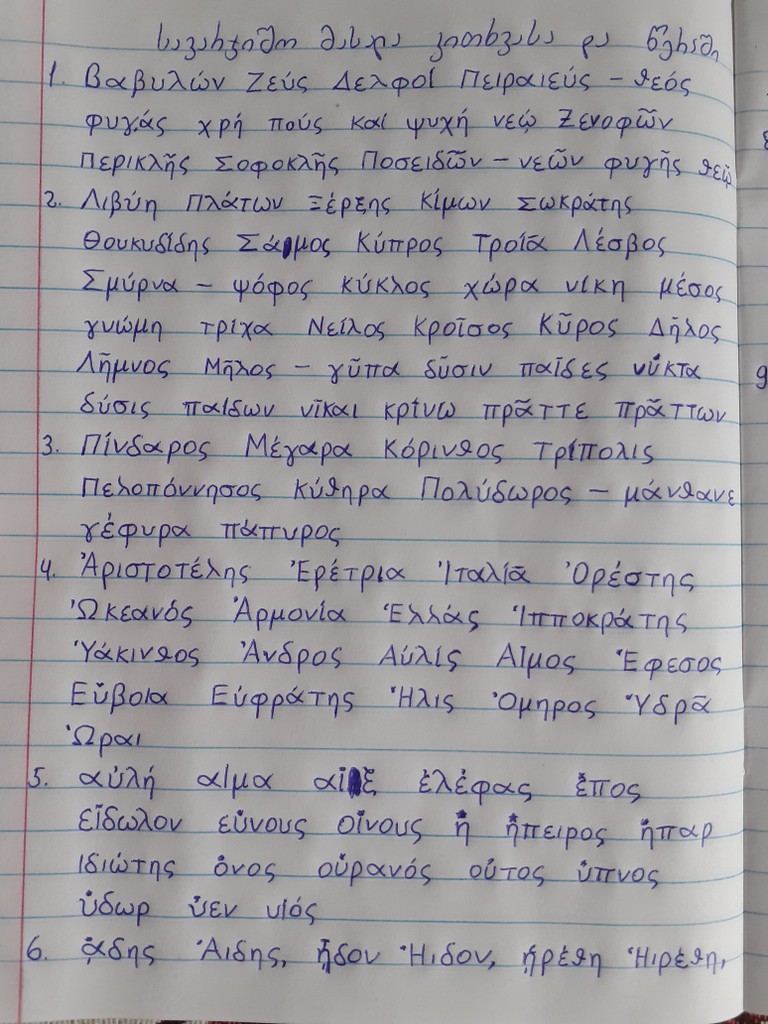 სავარჯიშო მასალა კითხვასა და წერაში
1. Βαβυλών Ζεύς Δελφοί Πειραιεύς – θεός
φυγάς χρή πούς και ψυχή νεῴ Ξενοφῶν
Περικλῆς Σοφοκλῆς Ποσειδῶν – νεῶν φυγῆς θεῷ
2. Λιβύη Πλάτων Ξέρξης Κίμων Σωκράτης
Θουκυδίδης Σάμος Κύπρος Τροίᾱ Λέσβος
Σμύρνα – ψόφος κύκλος χώρα νίκη μέσος
γνώμη τρίχα Νεῖλος Κροῖσος Κῦρος Δῆλος
Λῆμνος Μῆλος – γῦπα δῦσιν παῖδες νύκτα
δύσις παίδων νῖκαι κρίνω πρᾶττε πρᾶττων
3. Πίνδαρος Μέγαρα Κόρινθος Τρίπολις
Πελοπόννησος Κύθηρα Πολύδωρος – μάνθανε
γέφυρα πάπυρος
4. Ἀριστοτέλης Ἐρέτρια Ἰταλίᾱ Ὀρέστης
Ὠκεανός Ἁρμονία Ἑλλάς Ἱπποκράτης
Ὑάκινθος Ἄνδρος Αὐλίς Αἷμος Ἔφεσος
Εὔβοια Εὐφράτης Ἦλις Ὅμηρος Ὕδρᾱ
Ὧραι
5. αὐλή αἷμα αἴξ ἐλέφας ἔπος
εἴδωλον εὔνους οἴνους ἤ ἤπειρος ἧπαρ
ἰδιώτης ὄνος οὐρανός οὗτος ὕπνος
ὕδωρ ὗεν υἱός
6. ᾅδης Ἅιδης, ᾖδον Ἦιδον, ᾑρέθη Ἡιρέθη,